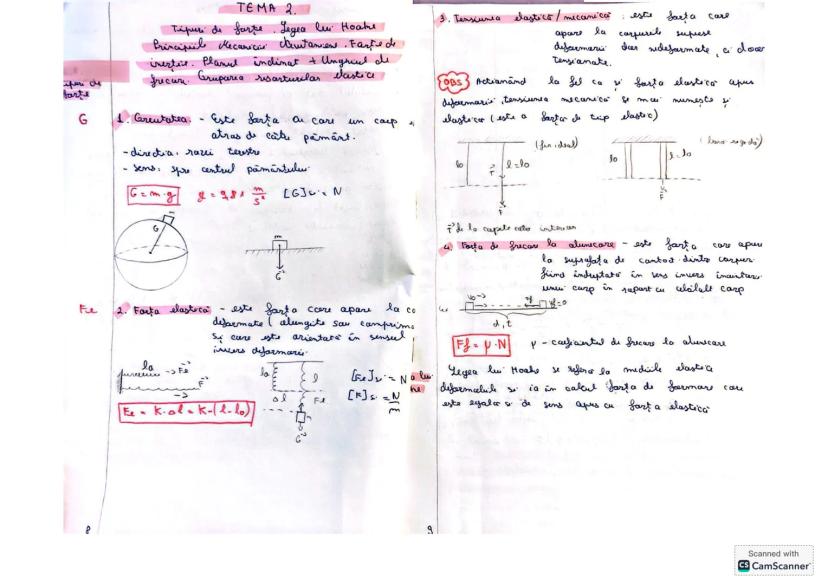 TEMA 2.
Tipuri de forțe. Legea lui Hooke
Principiile Mecanicii Newtoniene. Forțe de
inerție. Planul înclinat + Unghiul de
frecare. Gruparea resorturilor elastice
tipuri de
forțe
G 1. Greutatea. - Este forța cu care un corp e
atras de către pământ.
- direcția: razei terestre
- sens: spre centrul pământului
G = m·g g = 9,81 m/s² [G]si = N
G
m
G
Fe 2. Forța elastică - este forța care apare la co
deformate (alungite sau comprima
și care este orientată în sensul
invers deformării
l0 Fe F
l0 l
Δl Fe
G
[Fe]si = N
[K]si = N/m
Fe = K·Δl = K·(l-l0)
8
3. Tensiunea elastică/mecanică: este forța care
apare la corpurile supuse
deformării dar nedeformate, ci doar
tensionate.
OBS Acționând la fel ca și forța elastică opus
deformării, tensiunea mecanică se mai numește și
elastică (este o forță de tip elastic)
(fir ideal)
l0 l=l0
T
F
l0 l=l0
F
T de la capete către interior
4. Forța de frecare la alunecare - este forța care apare
la suprafața de contact dintre corpuri
fiind îndreptată în sens invers înaintării
unui corp în raport cu celălalt corp
v0 Ff v=0
d, t
Ff = μ·N μ - coeficientul de frecare la alunecare
Legea lui Hooke se referă la mediile elastice
deformabile și ia în calcul forța de deformare care
este egală și de sens opus cu forța elastică
9
Scanned with
CS CamScanner